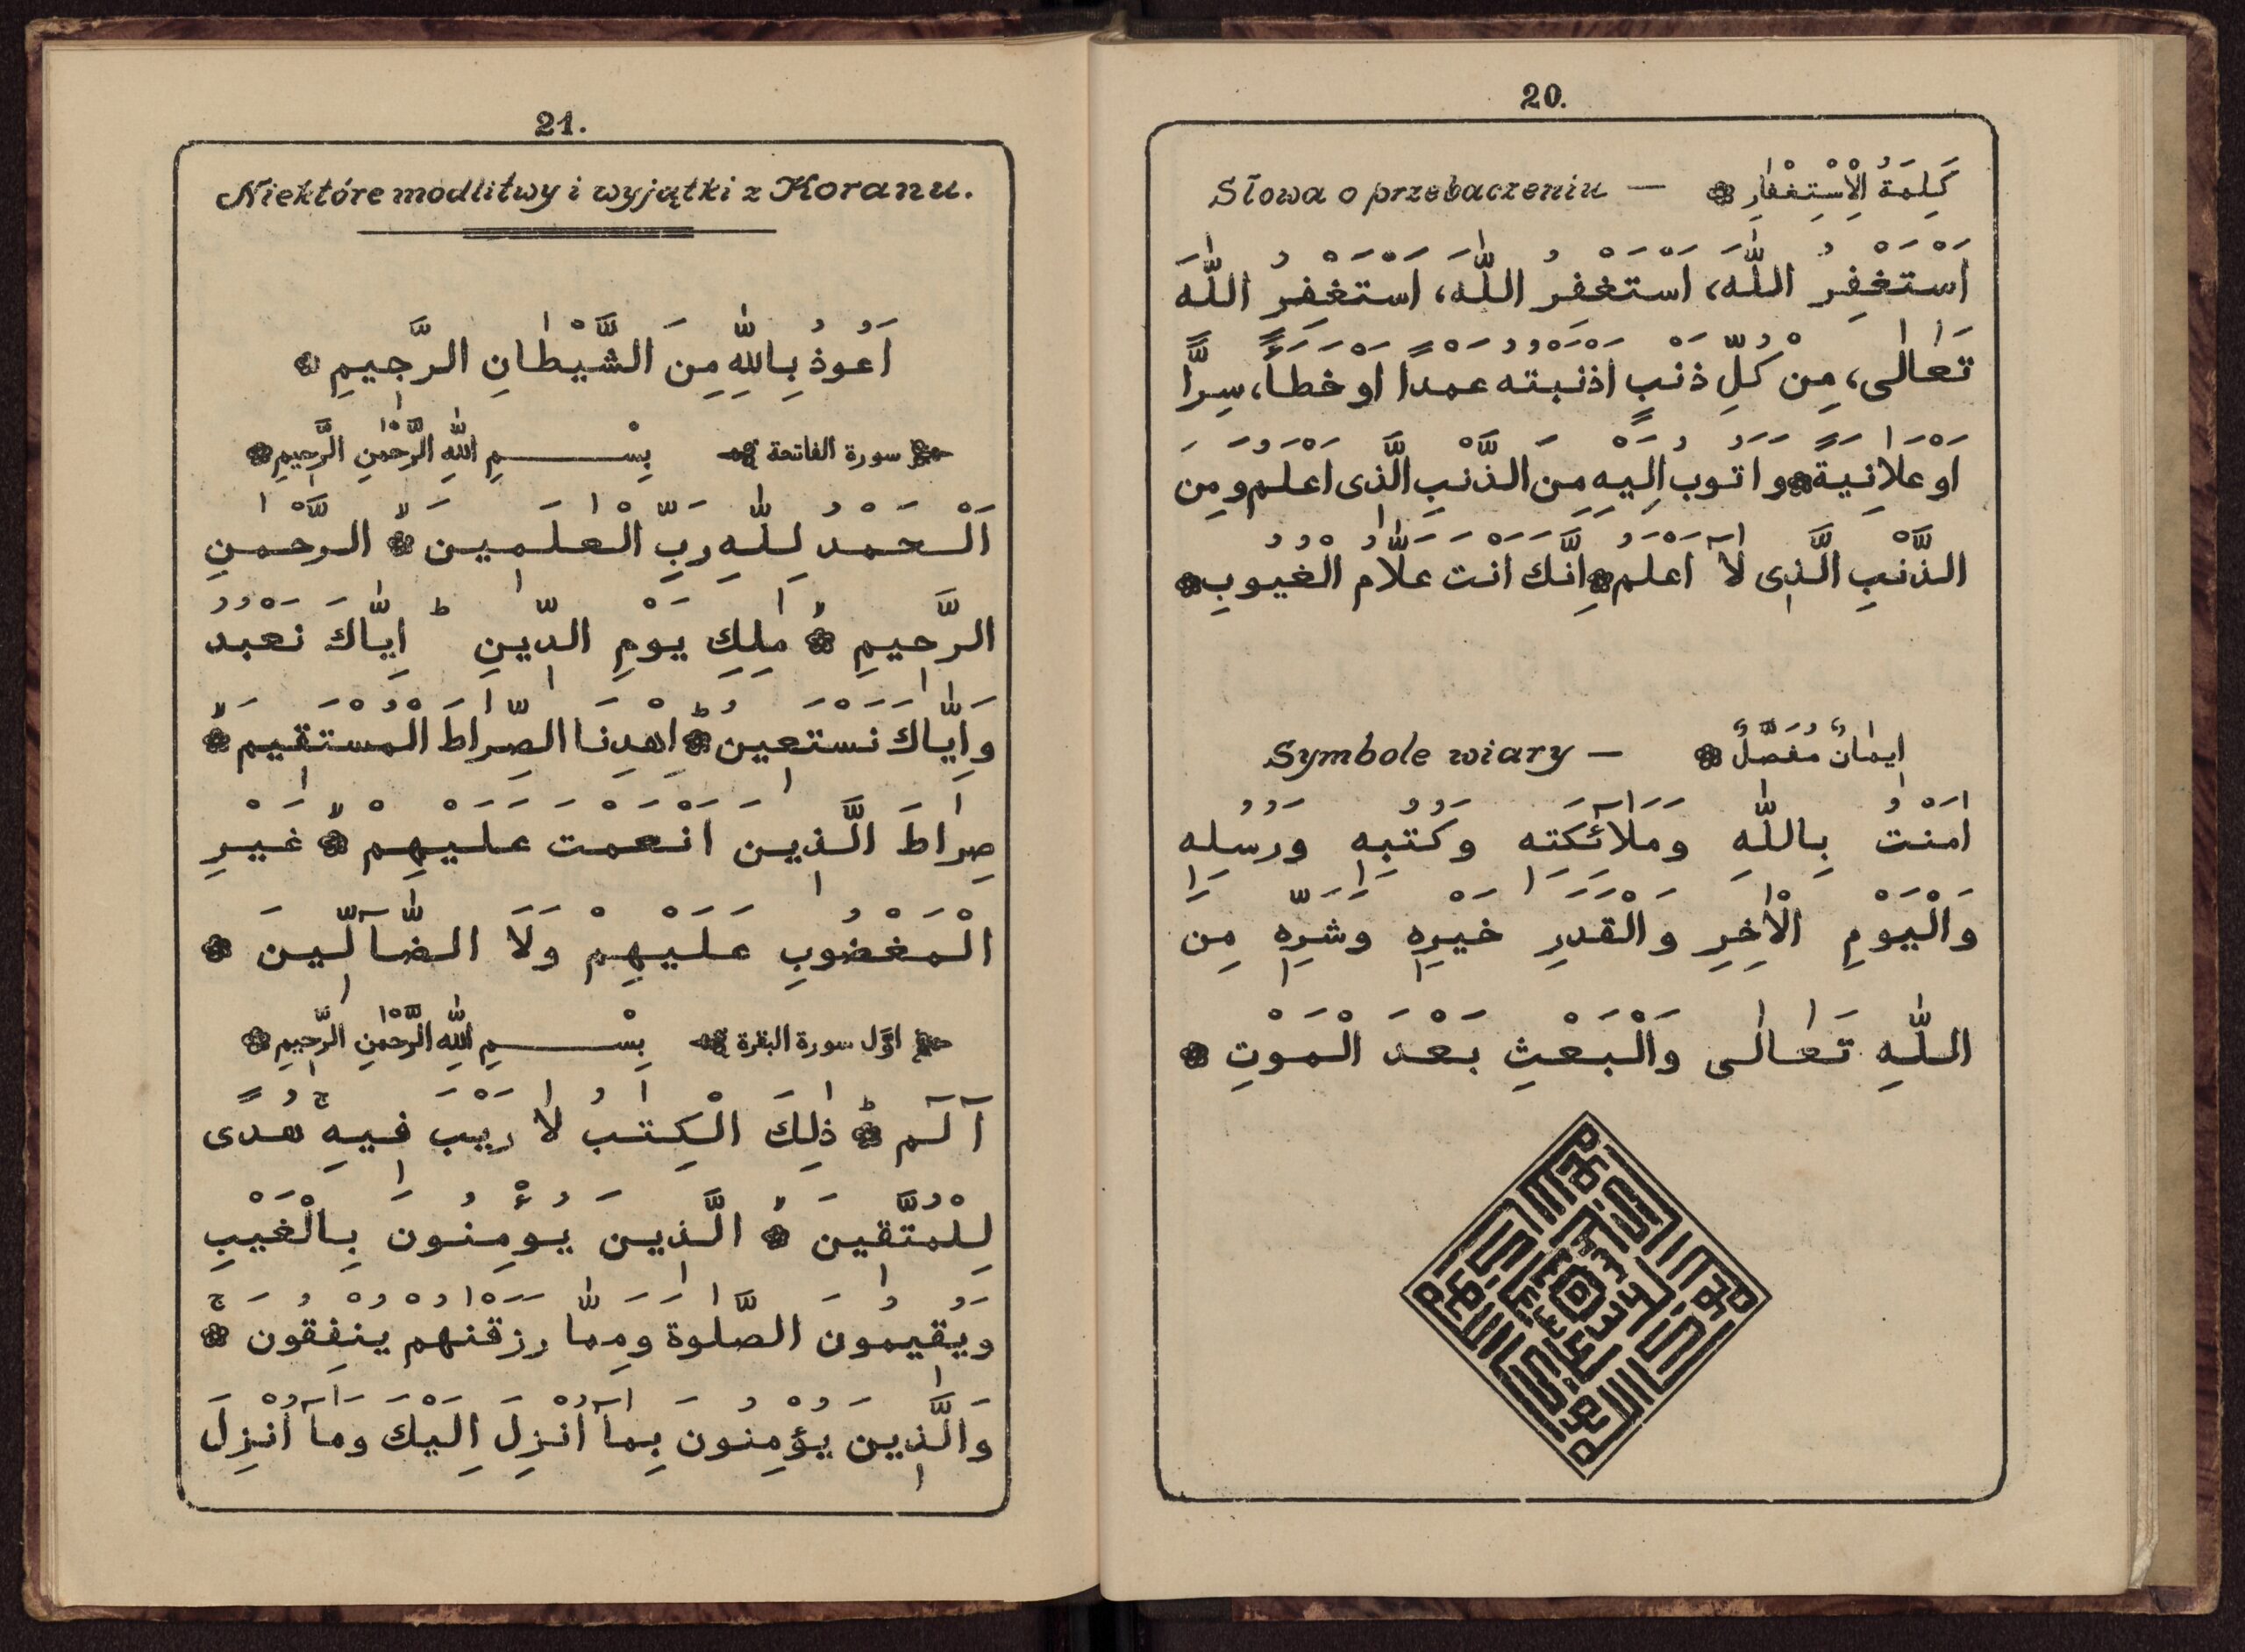 20.
Słowa o przebaczeniu — كَلِمَةُ الْاِسْتِغْفَارِ
اَسْتَغْفِرُ اللّٰهَ، اَسْتَغْفِرُ اللّٰهَ، اَسْتَغْفِرُ اللّٰهَ
تَعَالٰى، مِنْ كُلِّ ذَنْبٍ اَذْنَبْتُهُ عَمْدًا اَوْ خَطَأً، سِرًّا
اَوْ عَلَانِيَةً وَاَتُوبُ اِلَيْهِ مِنَ الذَّنْبِ الَّذِى اَعْلَمُ وَمِنَ
الذَّنْبِ الَّذِى لَآ اَعْلَمُ اِنَّكَ اَنْتَ عَلَّامُ الْغُيُوبِ
Symbole wiary — اِيمَانٌ مُفَصَّلٌ
اٰمَنْتُ بِاللّٰهِ وَمَلَآئِكَتِهِ وَكُتُبِهِ وَرُسُلِهِ
وَالْيَوْمِ الْاٰخِرِ وَالْقَدَرِ خَيْرِهِ وَشَرِّهِ مِنَ
اللّٰهِ تَعَالٰى وَالْبَعْثِ بَعْدَ الْمَوْتِ
21.
Niektóre modlitwy i wyjątki z Koranu.
اَعُوذُ بِاللّٰهِ مِنَ الشَّيْطَانِ الرَّجِيمِ
سورة الفاتحة بِسْمِ اللّٰهِ الرَّحْمٰنِ الرَّحِيمِ
اَلْحَمْدُ لِلّٰهِ رَبِّ الْعٰلَمِينَ الرَّحْمٰنِ
الرَّحِيمِ مٰلِكِ يَوْمِ الدِّينِ اِيَّاكَ نَعْبُدُ
وَاِيَّاكَ نَسْتَعِينُ اِهْدِنَا الصِّرَاطَ الْمُسْتَقِيمَ
صِرَاطَ الَّذِينَ اَنْعَمْتَ عَلَيْهِمْ غَيْرِ
الْمَغْضُوبِ عَلَيْهِمْ وَلَا الضَّآلِّينَ
اوّل سورة البقرة بِسْمِ اللّٰهِ الرَّحْمٰنِ الرَّحِيمِ
آلٓم ذٰلِكَ الْكِتٰبُ لَا رَيْبَ فِيهِ هُدًى
لِلْمُتَّقِينَ الَّذِينَ يُؤْمِنُونَ بِالْغَيْبِ
وَيُقِيمُونَ الصَّلٰوةَ وَمِمَّا رَزَقْنٰهُمْ يُنْفِقُونَ
وَالَّذِينَ يُؤْمِنُونَ بِمَآ اُنْزِلَ اِلَيْكَ وَمَآ اُنْزِلَ